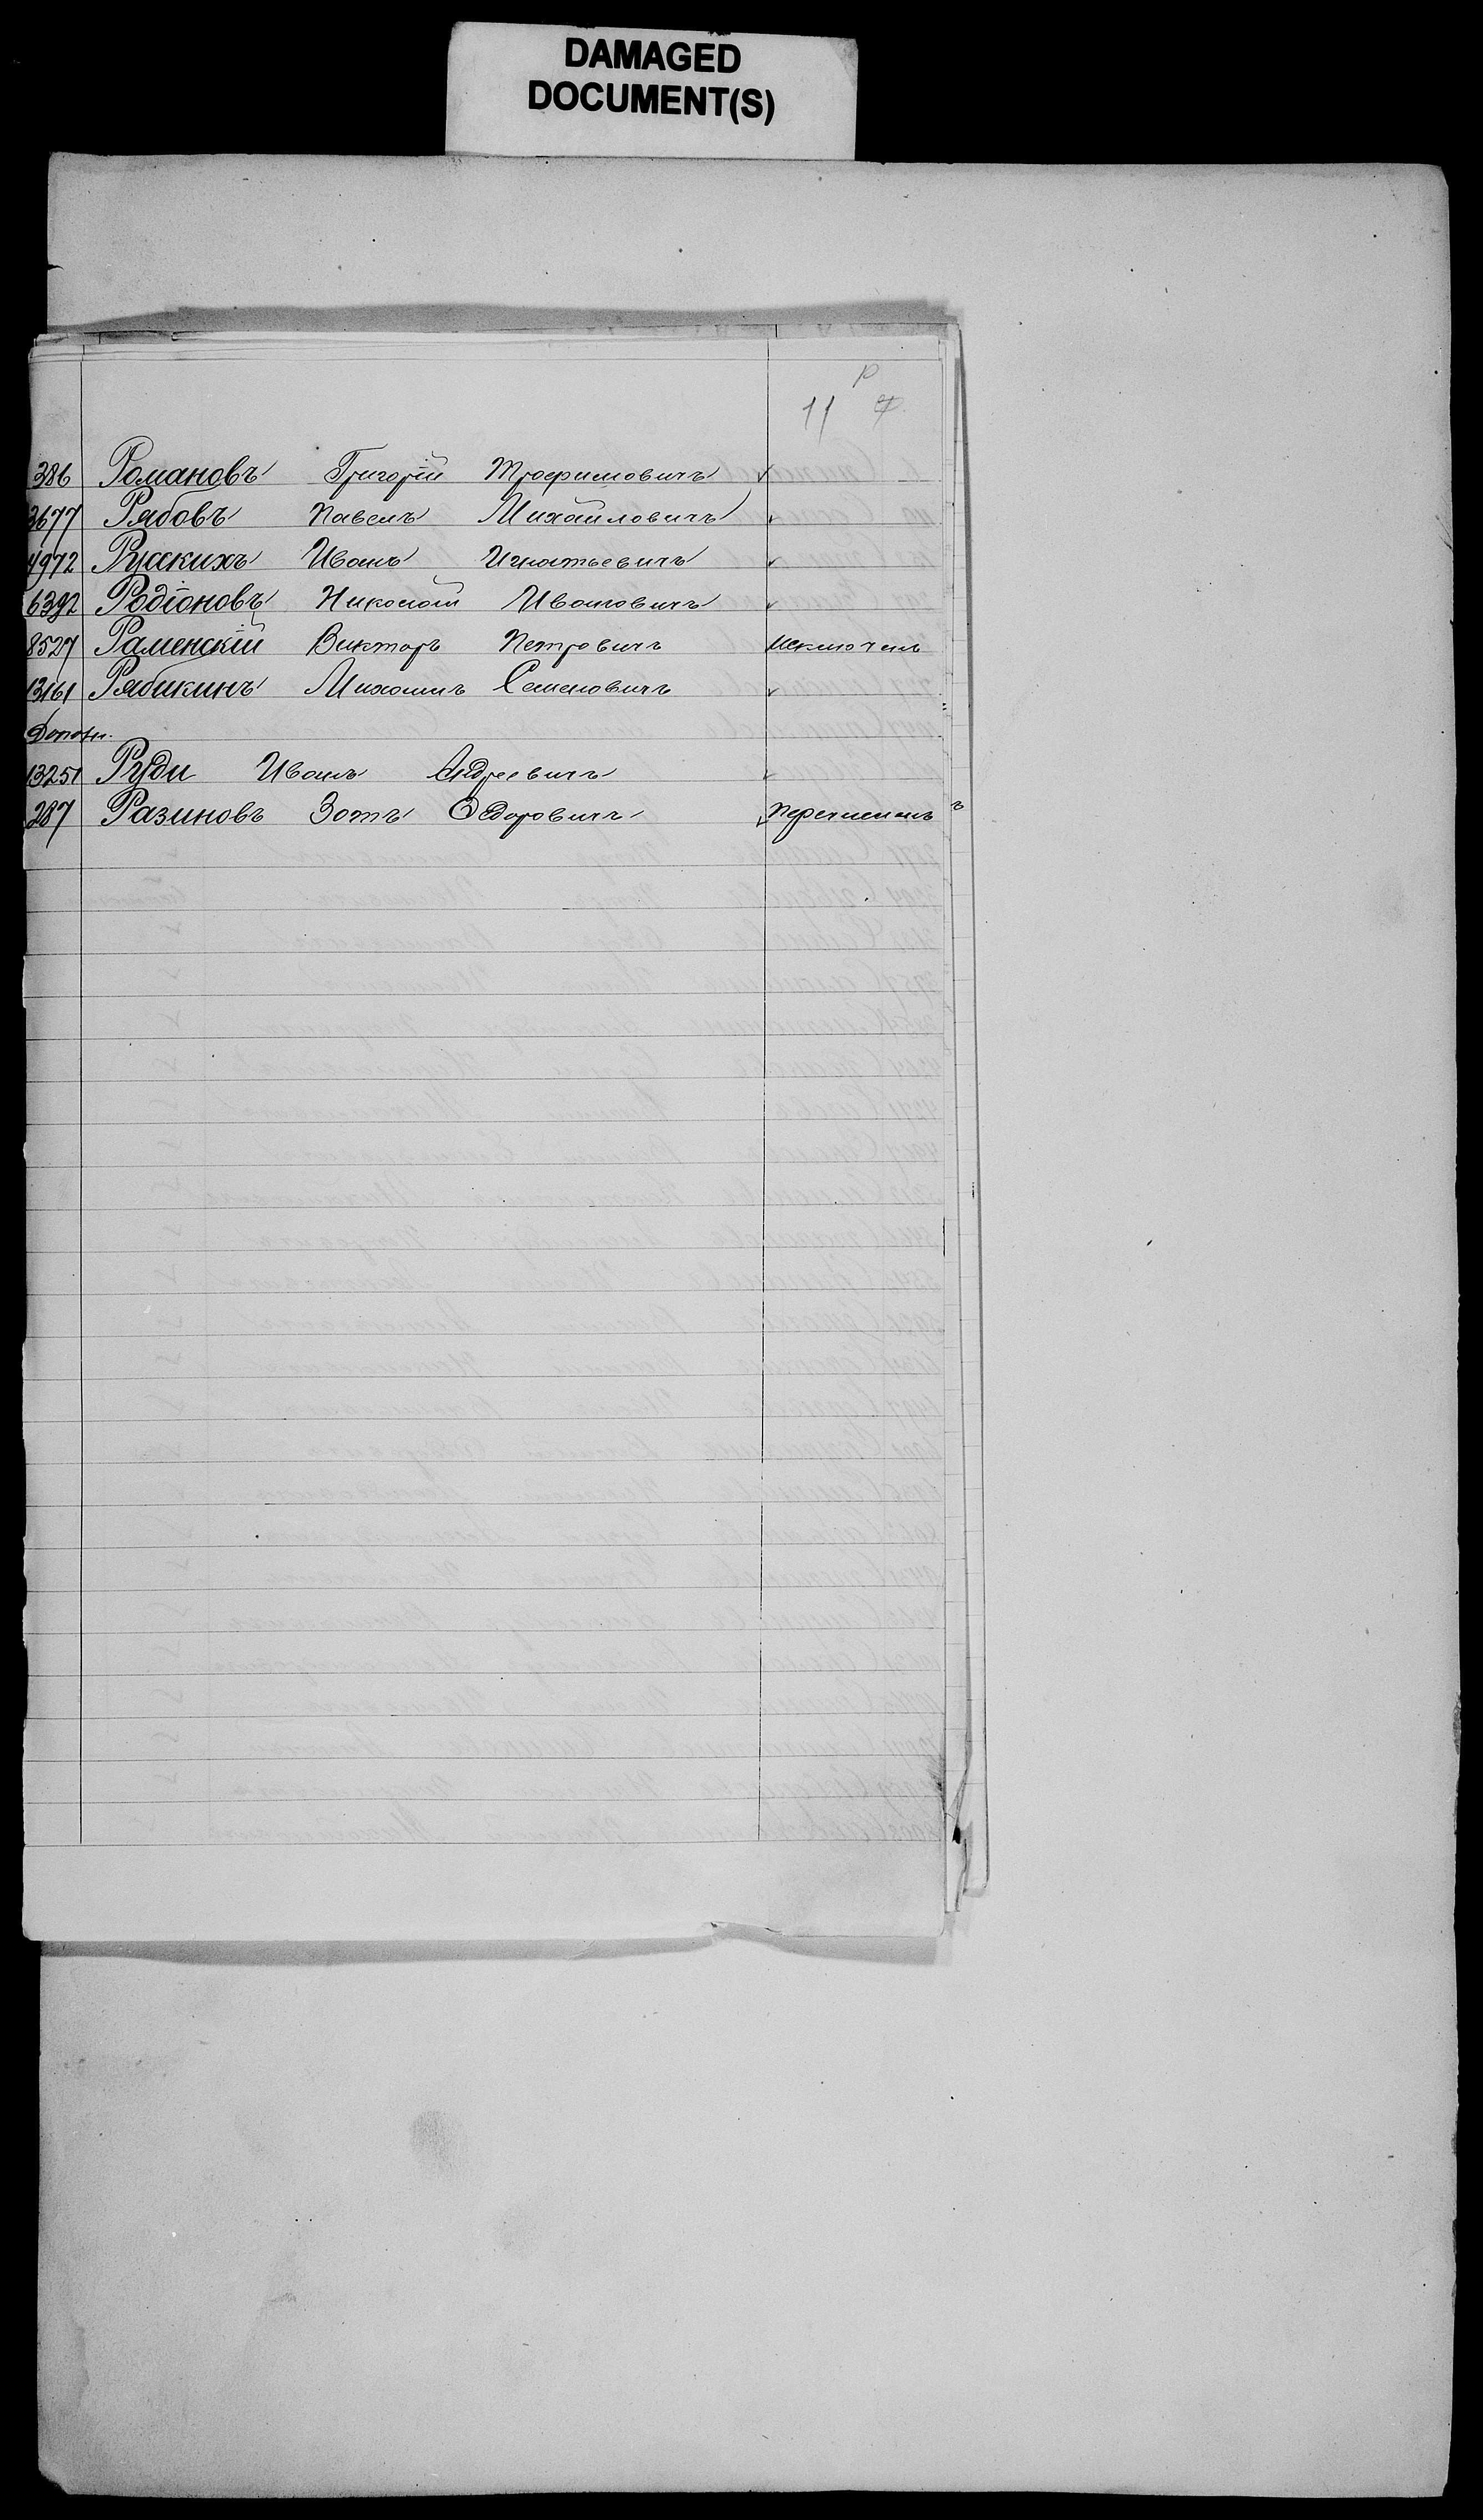 DAMAGED
DOCUMENT(S)
Р
11
386 Романовъ Григорій Трофимовичъ
3677 Рябовъ Павелъ Михайловичъ
4972 Русскихъ Иванъ Игнатьевичъ
6392 Родіоновъ Николай Ивановичъ
8527 Раменскій Викторъ Петровичъ исключенъ
13161 Рябикинъ Михаилъ Семеновичъ
Дополн.
13251 Руди Иванъ Андреевичъ
287 Разиновъ Зотъ Ѳедоровичъ перечисленъ